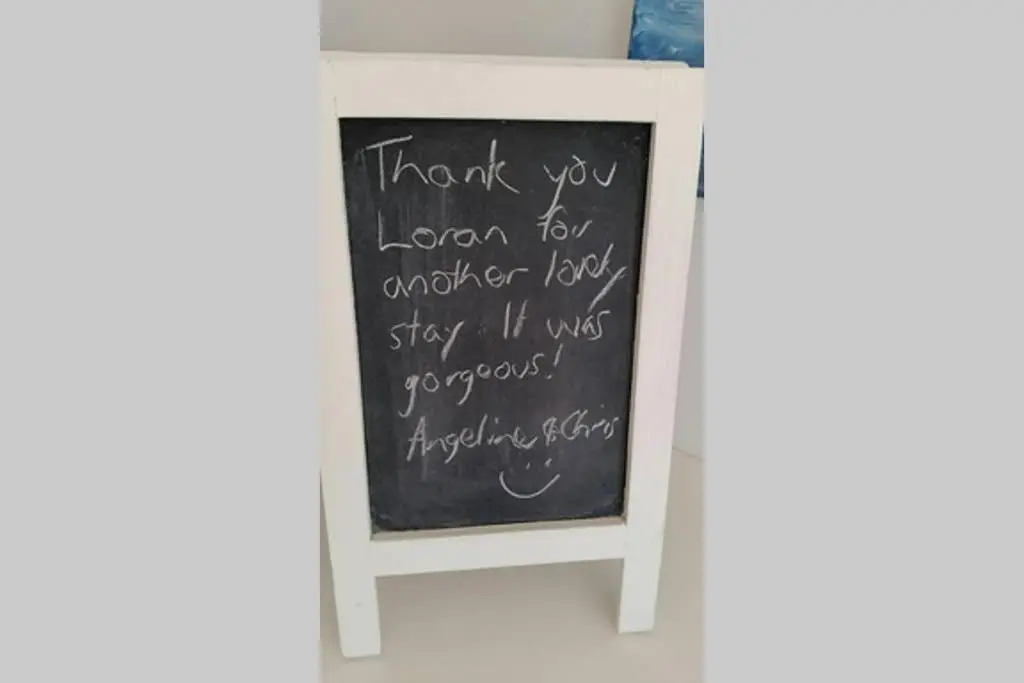 Thank you
Loran for
another lovely
stay. It was
gorgeous!
Angeline & Chris